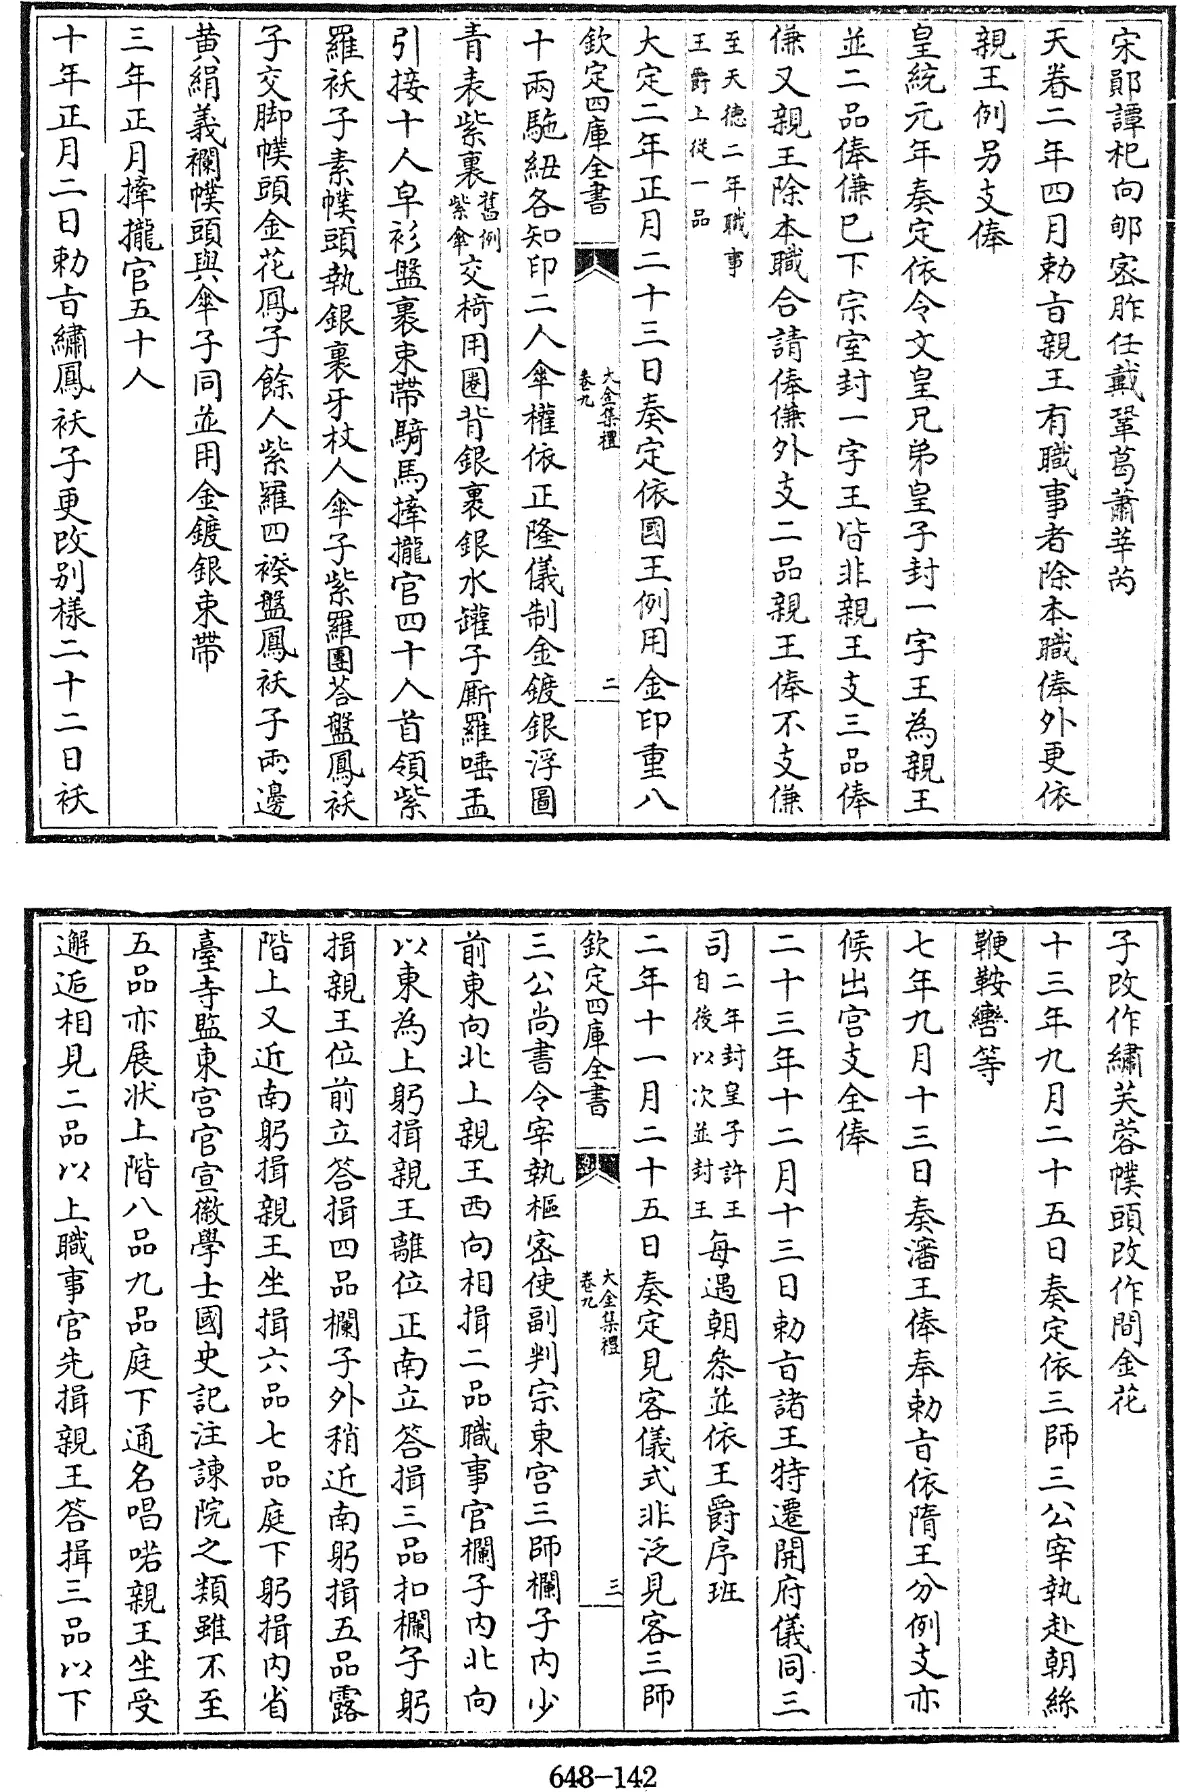 宋鄖譚杞向郇宻胙任戴鞏葛蕭莘芮
天眷二年四月勅㫖親王有職事者除本職俸外更依
親王例另支俸
皇統元年奏定依令文皇兄弟皇子封一字王為親王
並二品俸傔已下宗室封一字王皆非親王支三品俸
傔又親王除本職合請俸傔外支二品親王俸不支傔
至天徳二年職事
王爵上從一品
大定二年正月二十三日奏定依國王例用金印重八
欽定四庫全書
大金集禮
卷九
二
十兩駞紐各知印二人傘權依正隆儀制金鍍銀浮圖
青表紫裏舊例紫傘交椅用圏背銀裏銀水罐子厮羅唾盂
引接十人皁衫盤裹束帶騎馬攆攏官四十人首領紫
羅袄子素幞頭執銀裹牙杖人傘子紫羅團荅盤鳳袄
子交脚幞頭金花鳳子餘人紫羅四䙆盤鳳袄子兩邊
黄絹義襴幞頭與傘子同並用金鍍銀束帶
三年正月攆攏官五十人
十年正月二日勅㫖繡鳳袄子更改别様二十二日袄
子改作繡芙蓉幞頭改作間金花
十三年九月二十五日奏定依三師三公宰執赴朝絲
鞭鞍轡等
七年九月十三日奏瀋王俸奉勅㫖依隋王分例支亦
候出宫支全俸
二十三年十二月十三日勅㫖諸王特遷開府儀同三
司二年封皇子許王自後以次並封王每遇朝叅並依王爵序班
二年十一月二十五日奏定見客儀式非泛見客三師
欽定四庫全書
大金集禮
卷九
三
三公尚書令宰執樞宻使副判宗東宫三師欄子内少
前東向北上親王西向相揖二品職事官欄子内北向
以東為上躬揖親王離位正南立答揖三品扣欄子躬
揖親王位前立答揖四品欄子外稍近南躬揖五品露
階上又近南躬揖親王坐揖六品七品庭下躬揖内省
臺寺監東宫官宣徽學士國史記注諫院之類雖不至
五品亦展状上階八品九品庭下通名唱喏親王坐受
邂逅相見二品以上職事官先揖親王答揖三品以下
648-142